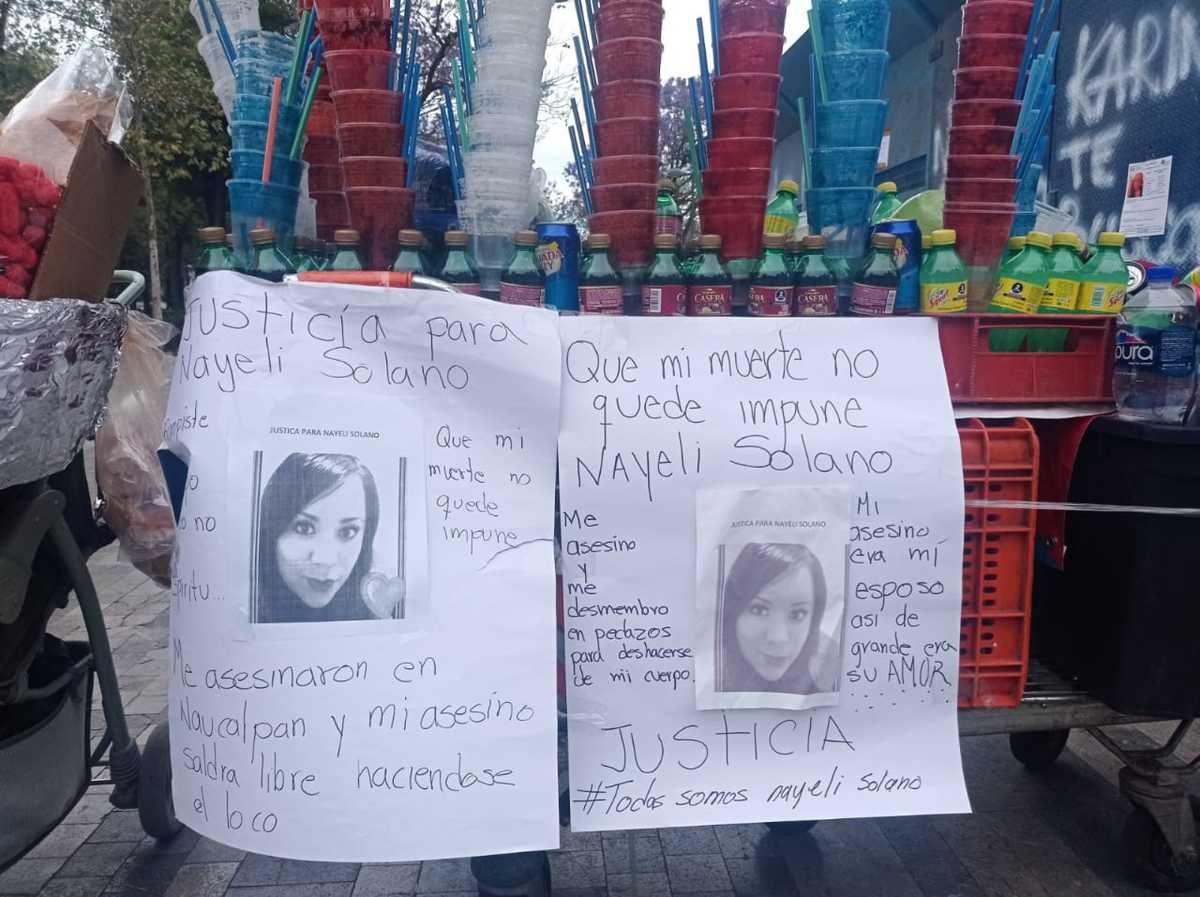 Justicía para
Nayeli Solano
JUSTICA PARA NAYELI SOLANO
Que mi
muerte no
quede
impune
no
Me asesinaron en
Naucalpan y mi asesino
saldra libre haciendase
el loco
Que mi muerte no
quede impune
NAYELI Solano
Me
asesino
y
me
desmembro
en pedazos
para deshacerse
de mi cuerpo.
JUSTICIA PARA NAYELI SOLANO
Mi
asesino
era mí
esposo
asi de
grande era
su AMOR
.......
JUSTICIA
#Todas somos nayeli solano
KARIN
TE
CASERA
CASERA
CASERA
Squirt
pura